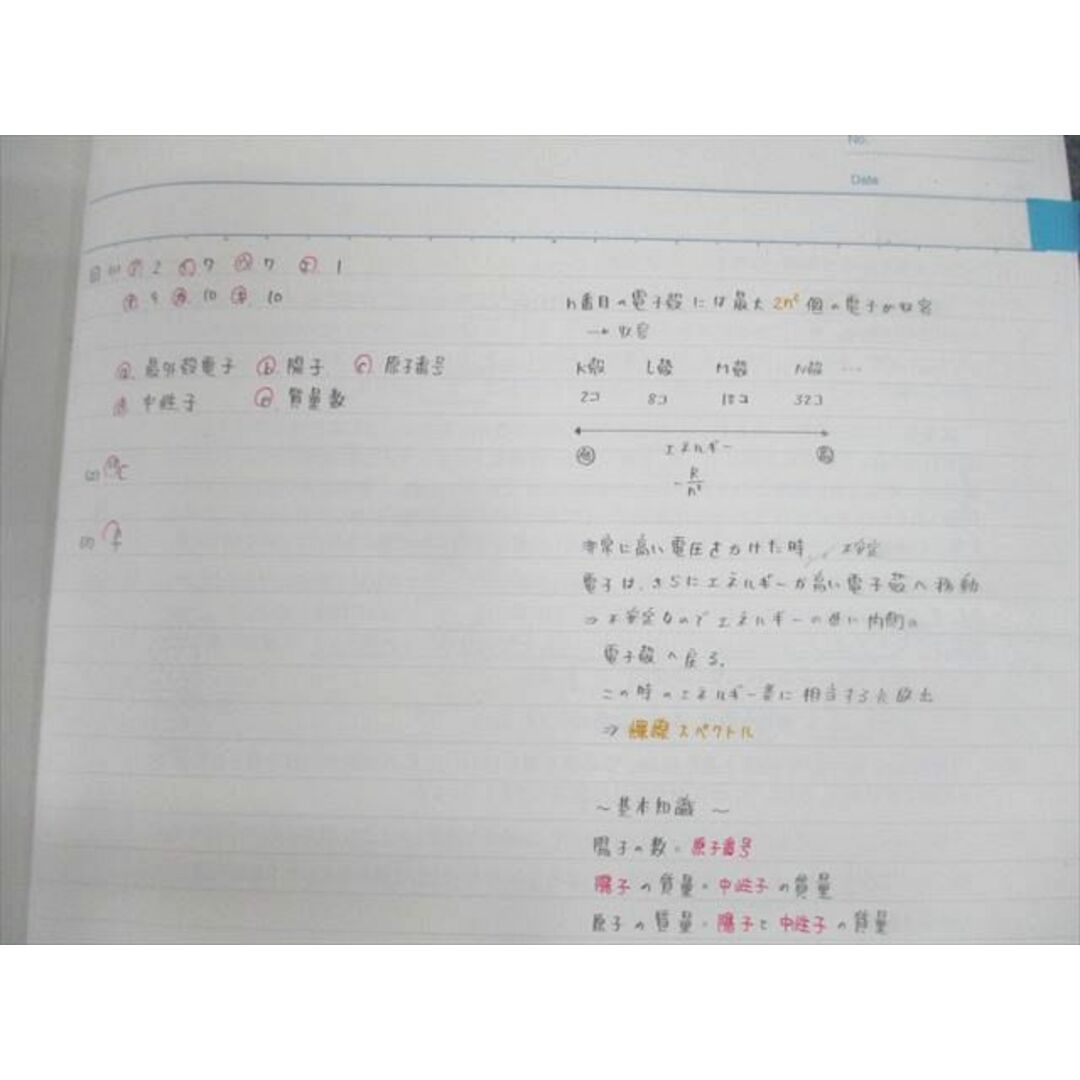 No.
Date
(1) 2 7 7 1
9 10 10
a 最外殻電子 b 陽子 c 原子番号
d 中性子 e 質量数
(2)
(3)
n番目の電子殻には最大2n²個の電子が収容
→ 収容
K殻 L殻 M殻 N殻 …
2コ 8コ 18コ 32コ
エネルギー
非常に高い電圧をかけた時 不安定
電子は、さらにエネルギーが高い電子殻へ移動
⇒ 不安定なのでエネルギーの低い内側の
電子殻へ戻る。
この時のエネルギー差に相当する光放出
⇒ 輝線スペクトル
～基本知識～
陽子の数=原子番号
陽子の質量=中性子の質量
原子の質量=陽子と中性子の質量